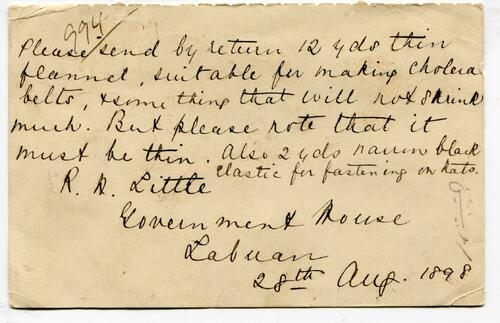 994
Please send by return 12 yds thin
flannel, suitable for making cholera
belts, & something that will not shrink
much. But please note that it
must be thin. Also 2 yds narrow black
elastic for fastening on hats.
R. R. Little
Government House
Labuan
28th Aug. 1898